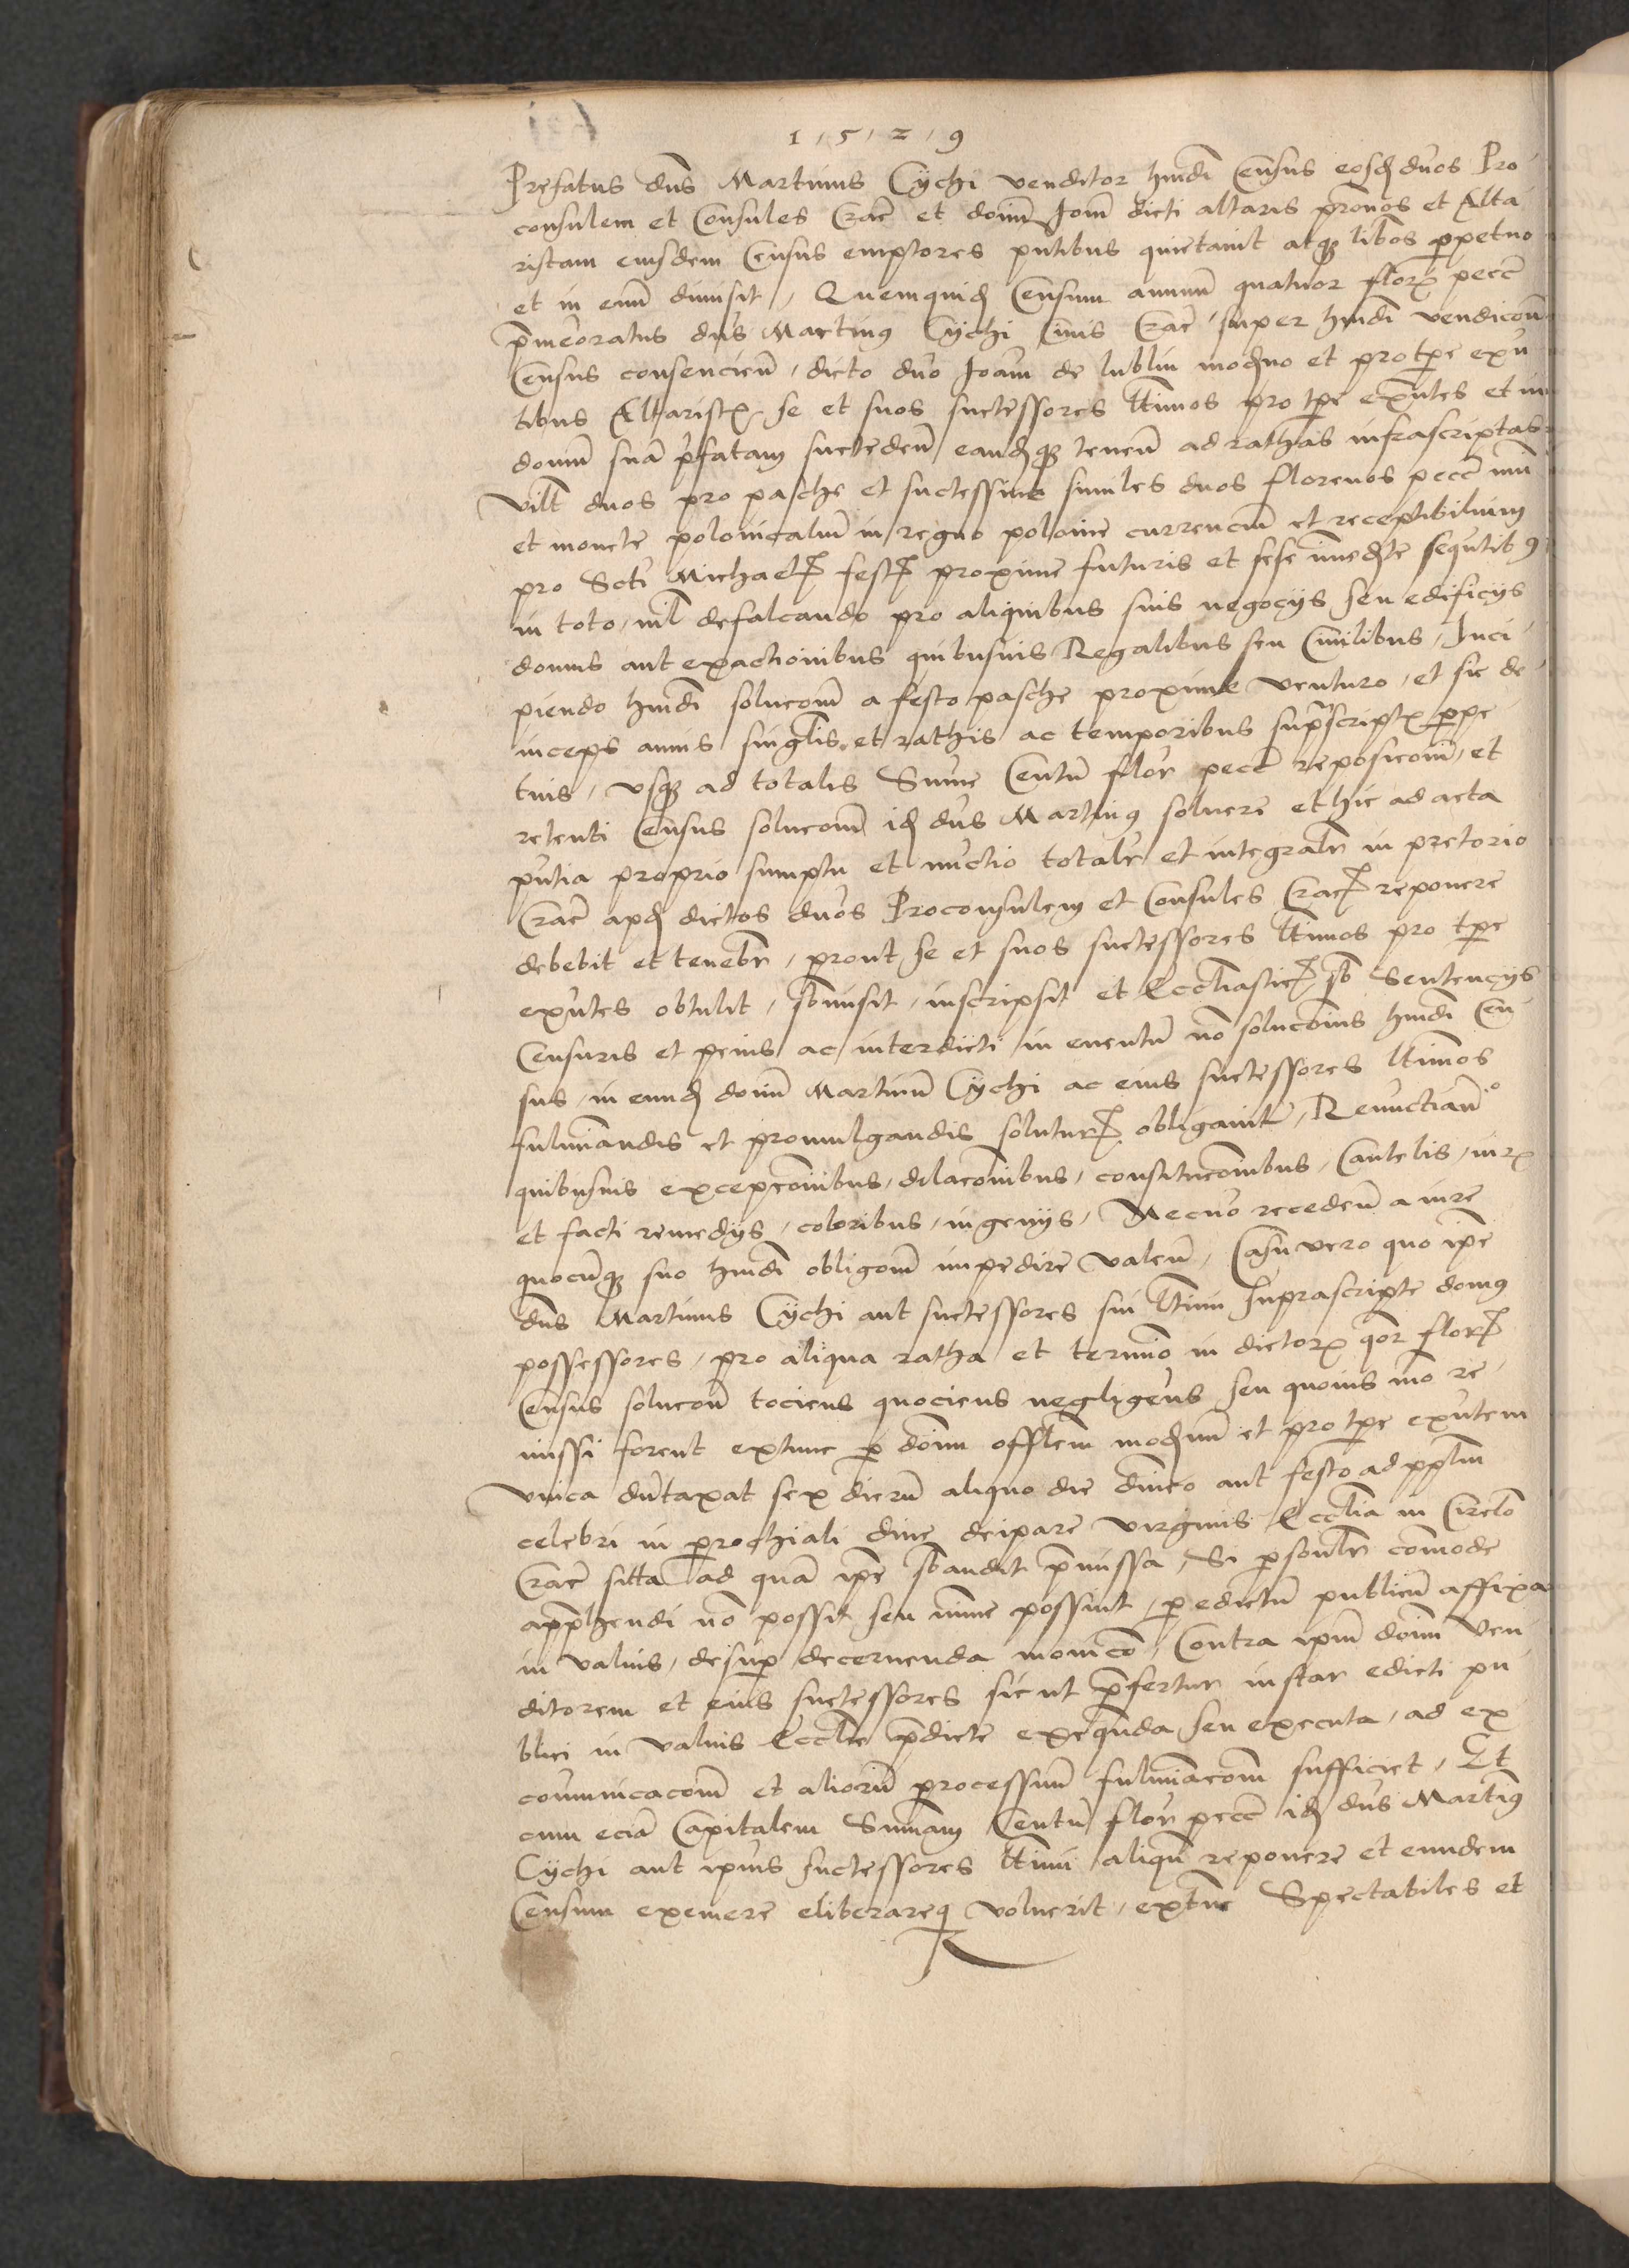 1 5 2 9
Prefatus dns Martinus Cychi venditor hmdi Census eosd dnos Pro
consulem et Consules Crac et donm Joan dicti altaris provos et Alta
ristam eiusdem Census emptores pntibus quietavit atq libos perpetuo
et in evu dimisit, Quemquid Censum annuu quatuor floru pecc
pmeoratus dns Martinus Cychi Civis Crac super hmdi vendicou
Census consenciens, dicto dno Joan de lublin moderno et pro tpe exn
tibus Altaristis se et suos successores ltimos pro tpe exntes et in
domu sua prefatam succeden eandq tenen ad rathas infrascriptas
vilt duos pro pasche et successive similes duos florenos pecc num
et monete polonicalium in regno polonie curren et receptibilium
pro Scti Michaelis festis proxime futuris et sese imediate sequtibus
in toto, nil defalcando pro aliquibus suis negocijs seu edificijs
domus aut exactionibus quibusuis Regalibus seu Ciuilibus, Inci
piendo hmdi solucom a festo pasche proxime venturo, et sic de
inceps annis singlis et rathis ac temporibus suprascriptis perpe
tuis, usq ad totalis Sume Centu flor pecc reposicom, et
retenti Census solucom id dns Martinus soluere et hic ad acta
pntia proprio sumptu et nuctio totalr et integralr in pretorio
Crac apud dictos dnos Proconsulem et Consules Crac reponere
debebit et tenebr, prout se et suos successores ltimos pro tpe
exntes obtulit, sbmisit, inscripsit et Eccliasticis sb Sentencijs
Censuris et penis ac interdicti in eventu no solucois hmdi Cen
sus, in eund donm Martinu Cychi ac eius successores ltimos
fulminandis et promulgandis soluturos obligauit, Renuctiauo
quibusuis excepcoibus, dilacoibus, constitucoibus, Cautelis, iuris
et facti remedijs, coloribus, ingenijs, Nec no receden a iure
quocunq suo hmdi obligom impedire valen, Casu vero quo ipe
dns Martinus Cychi aut successores sui ltimi suprascripte domus
possessores, pro aliqua ratha et termio in dictoru qor flor
Census solucom tociens quociens negligens seu quouis mo re
missi forent extunc per donm offlem modnum et pro tpe exntem
Vnica duntaxat sex dieru aliquo die dnico aut festo ad pplm
celebri in parochiali diue deipare Virginis Ecclia in Circlo
Crac sitta ad qua ipe sbaudit pmissa, Si personlr comode
appphendi no possit seu mime possint, per edictu publicu affixa
in valuis, desup decernenda monicio, Contra ipm donm ven
ditorem et eius successores sicut pfertur instar edicti pu
blici in valuis Ecclie pdicte exequnda seu executa, ad ex
comunicacom et alioru processuu fulminacom sufficiet, Et
cum ecia Capitalem Sumam Centu flor pecc id dns Martinus
Cychi aut ipius successores ltimi aliqn reponere et eundem
Censum exemere eliberareq voluerit, extunc Spectabiles et